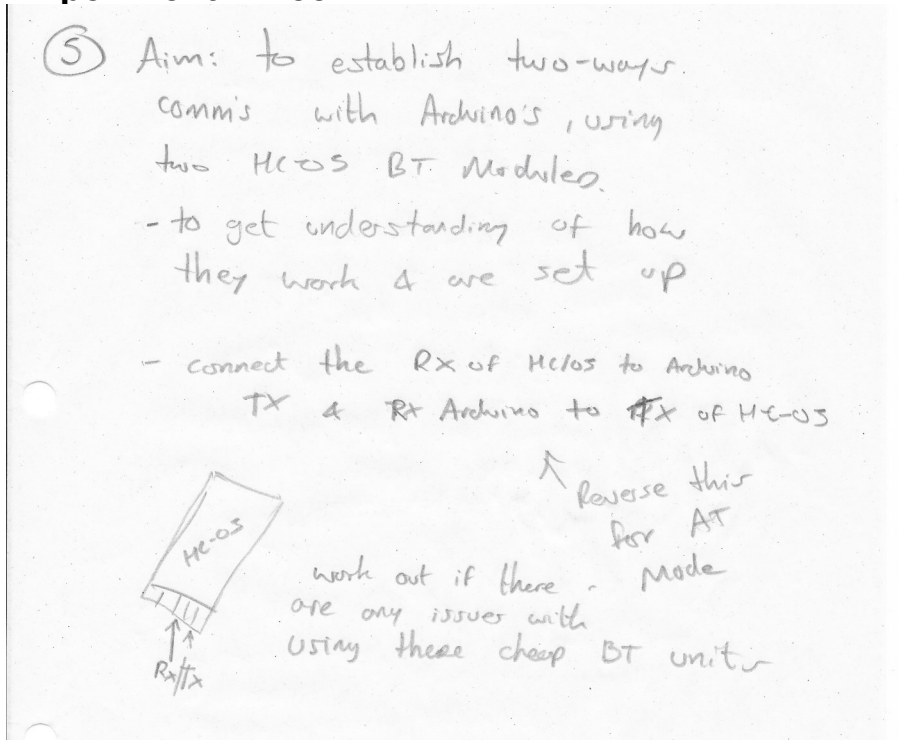 ⑤ Aim: to establish two-ways
comm's with Arduino's, using
two HC-05 BT Modules.
- to get understanding of how
they work & are set up
- connect the RX of HC/05 to Arduino
TX & RX Arduino to TX of HC-05
↑ Reverse this
for AT
Mode
HC-05
work out if there
are any issues with
using these cheap BT units
Rx/Tx